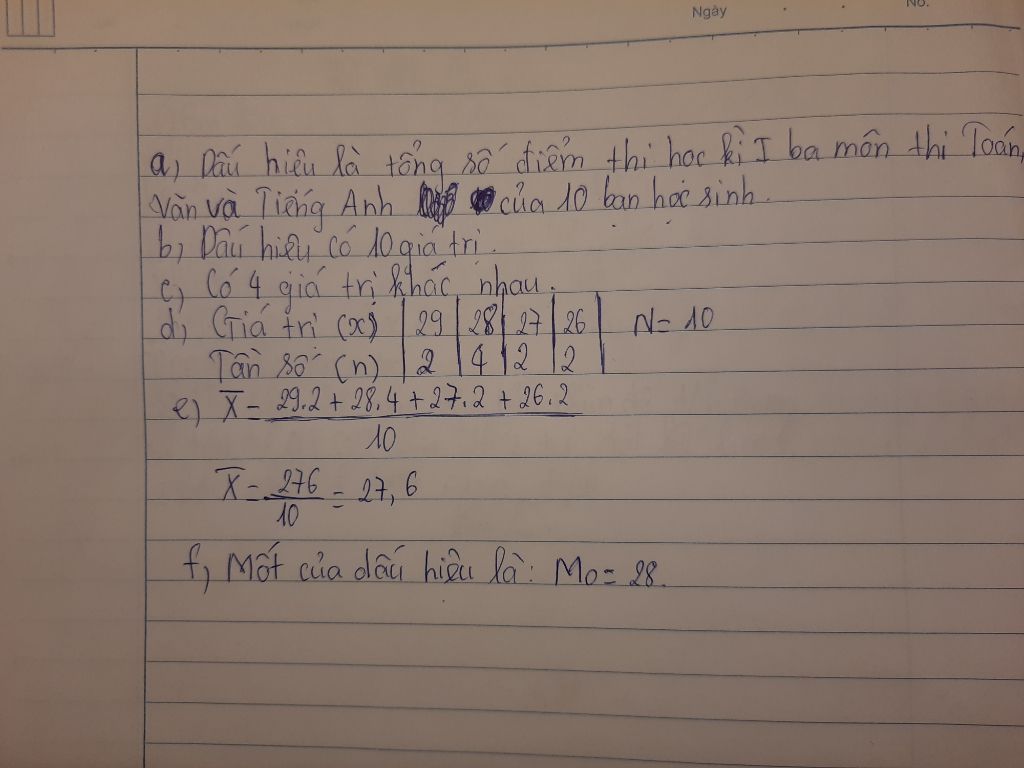 Ngày
No.
a, Dấu hiệu là tổng số điểm thi học kì I ba môn thi Toán,
Văn và Tiếng Anh của 10 bạn học sinh.
b, Dấu hiệu có 10 giá trị.
c, Có 4 giá trị khác nhau.
d, Giá trị (x) | 29 | 28 | 27 | 26 | N = 10
Tần số (n) | 2 | 4 | 2 | 2 |
e) X̄ = 29.2 + 28.4 + 27.2 + 26.2
10
X̄ = 276/10 = 27,6
f, Mốt của dấu hiệu là: Mo = 28.